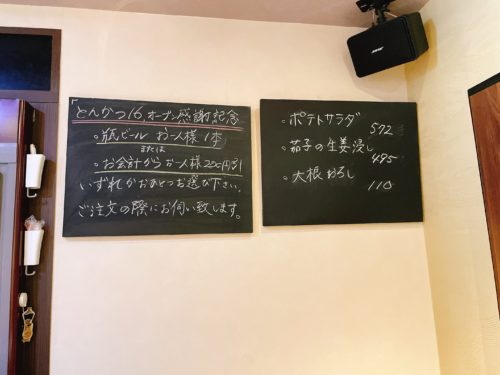 とんかつ16.オープン感謝記念
・瓶ビール お一人様1本
または
・お会計からお一人様200円引
いずれかおひとつお選び下さい。
ご注文の際にお伺い致します。
・ポテトサラダ
572
・茄子の生姜浸し
495
・大根おろし
110
BOSE